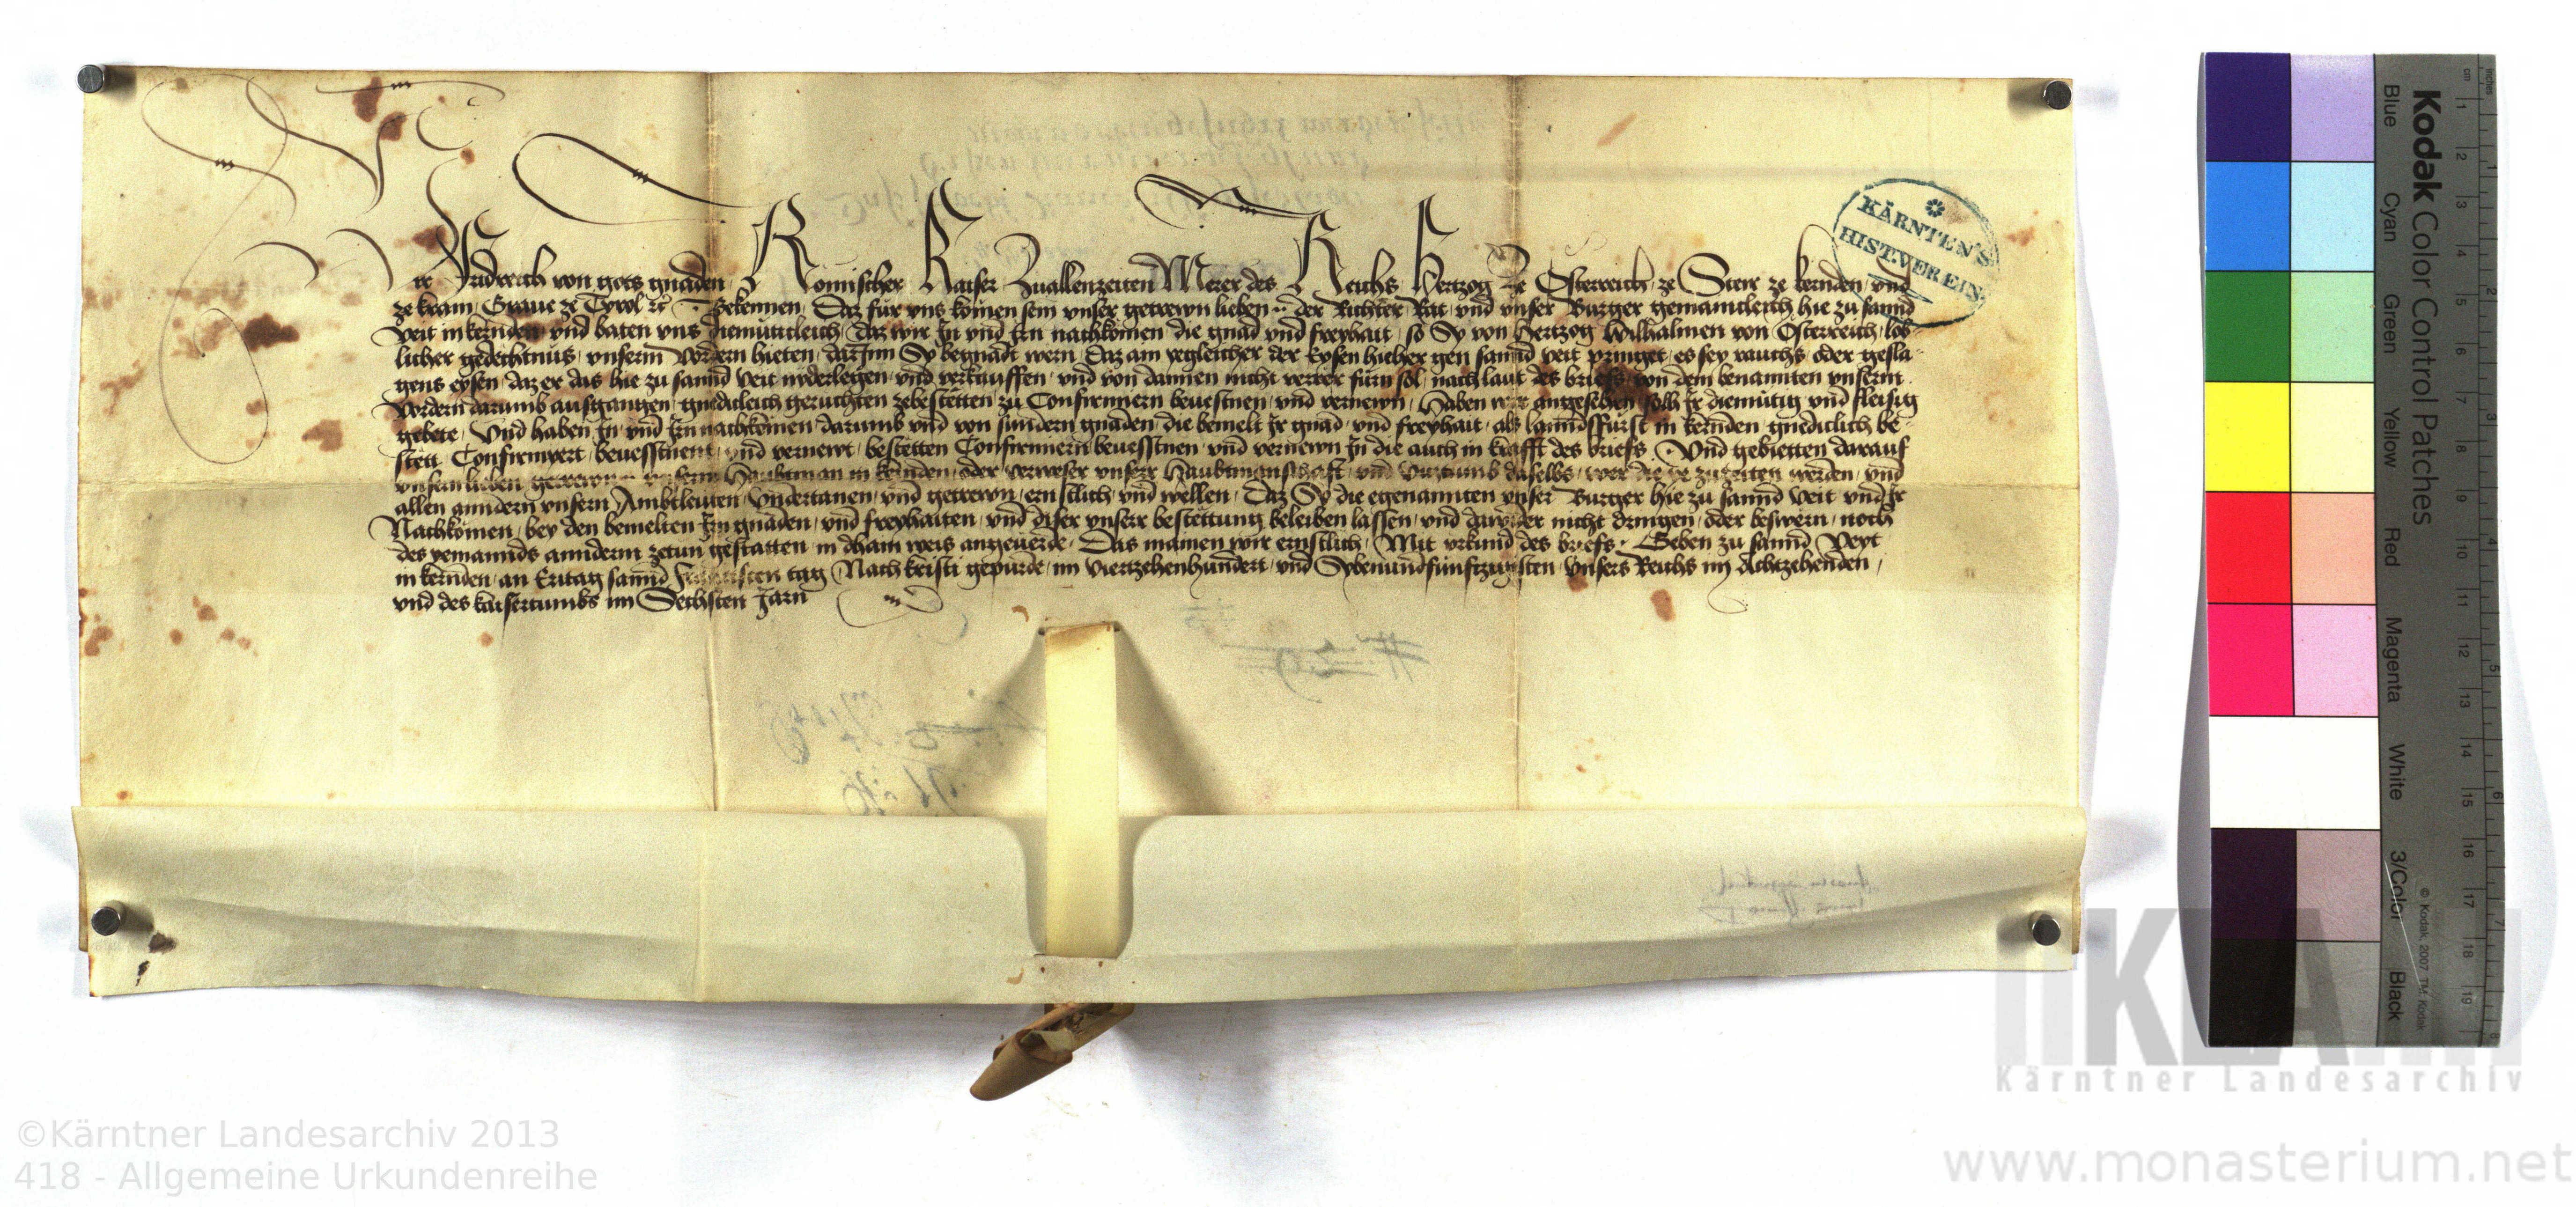 Wir Fridreich von gots gnaden Romischer Kaiser Zuallenzeiten Merer des Reichs Hertzog ze Osterreich ze Steir ze kernden vnd
ze krain Graue ze Tyrol etc Bekennen Daz für vns komen sein vnser getrewn lieben der Richter Rat vnd vnser Burger gemaintleich hie zu sannd
Veit in kernden vnd baten vns diemuticleich daz wir In vnd Irn nachkomen die gnad vnd freyhait so Sy von Hertzog Wilhalmen von Osterreich lob
licher gedechtnüs vnserm Vordern hieten darInn Sy begnadt wern Daz ain yegleicher der Eysen hieher gen sannd veit pringet es sey rauchs oder gesla
gens eysen daz er das hie zu sannd Veit nyderlegen vnd verkauffen vnd von dannen nicht verrer fürn sol nach laut des briefs von dem benannten vnserm
Vordern darumb ausgangen gnedicleich geruchten zebestetten zu Confirmiern beuestnen vnd vernewn Haben wir angesehen solh Ir diemütig vnd fleisig
gebete Vnd haben In vnd Irn nachkomen darumb vnd von sundern gnaden die bemelt Ir gnad vnd freyhait als lanndsfürst in kernden gnediclich be
stett Confirmyert beuesstnent vnd vernewt bestetten Confirmiern beuesstnen vnd vernewn In die auch in krafft des briefs Vnd gebietten darauf
vnsern lieben getrewn vnserm Haubtman in kernden oder verweser vnserr Haubtmanschafft vnd Vitztumb daselbs wer die ye zuzeiten werden vnd
allen anndern vnsern Ambtleuten Vndertanen vnd getrewn ernstlich vnd wellen Daz Sy die egenannten vnser Burger hie zu sannd Veit vnd Ir
Nachkomen bey den bemelten Irn gnaden vnd freyhaiten vnd diser vnserr bestettung beleiben lassen vnd dawider nicht dringen oder beswern noch
des yemannds annderm zetun gestatten in dhain weis angeuerde Das mainen wir ernstlich Mit vrkund des briefs Geben zu sannd Veyt
in kernden an Eritag sannd tag Nach kristi gepurde im Viertzehenhundert vnd Sybenundfunftzigisten Vnsers Reichs im Achtzehenden
vnd des kaisertumbs im Sechsten Jarn
KÄRNTEN'S
HIST. VEREIN
Kodak Color Control Patches
Blue Cyan Green Yellow Red Magenta White 3/Color Black
© Kodak, 2007 TM: Kodak
inches
cm
1 2 3 4 5 6 7 8 9 10 11 12 13 14 15 16 17 18 19
1 2 3 4 5 6 7 8
KLA
Kärntner Landesarchiv
©Kärntner Landesarchiv 2013
418 - Allgemeine Urkundenreihe
www.monasterium.net